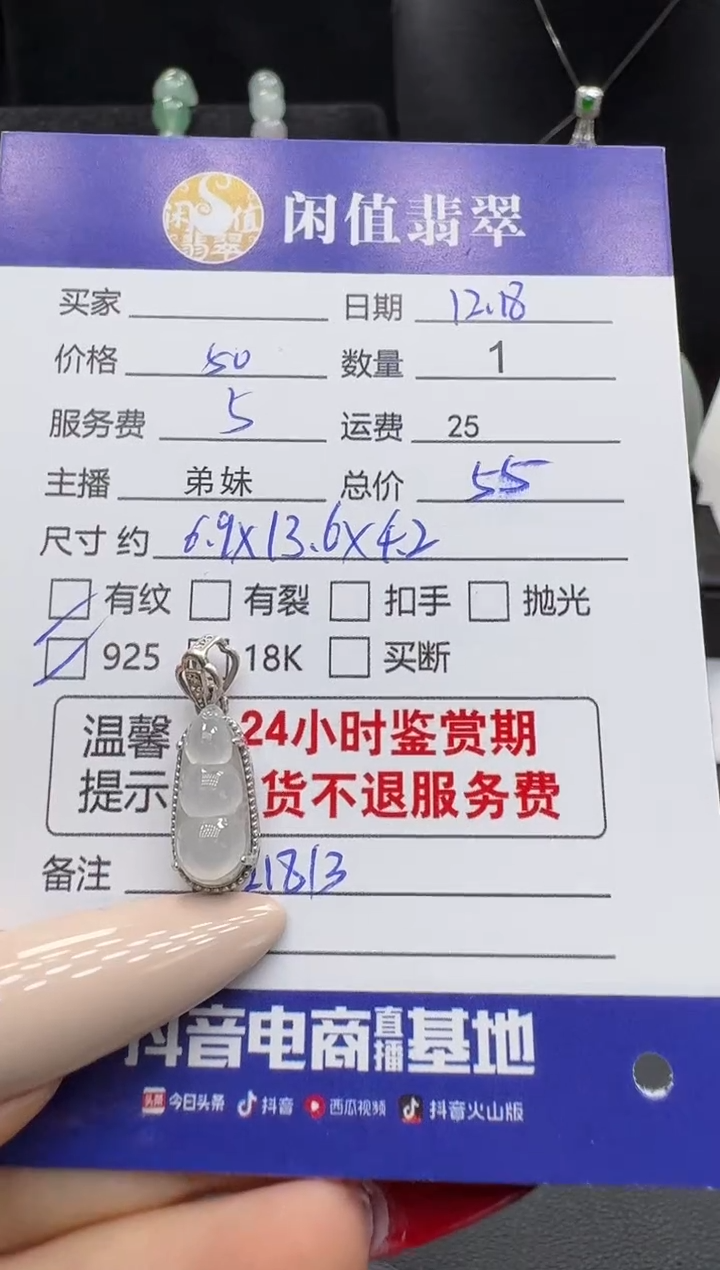 闲值翡翠 闲值翡翠
买家 日期 12.18
价格 50 数量 1
服务费 5 运费 25
主播 弟妹 总价 55
尺寸 约 6.9X13.6X4.2
有纹 有裂 扣手 抛光
925 18K 买断
温馨 24小时鉴赏期
提示 货不退服务费
备注 1813
抖音电商直播基地
头条 今日头条 抖音 西瓜视频 抖音火山版